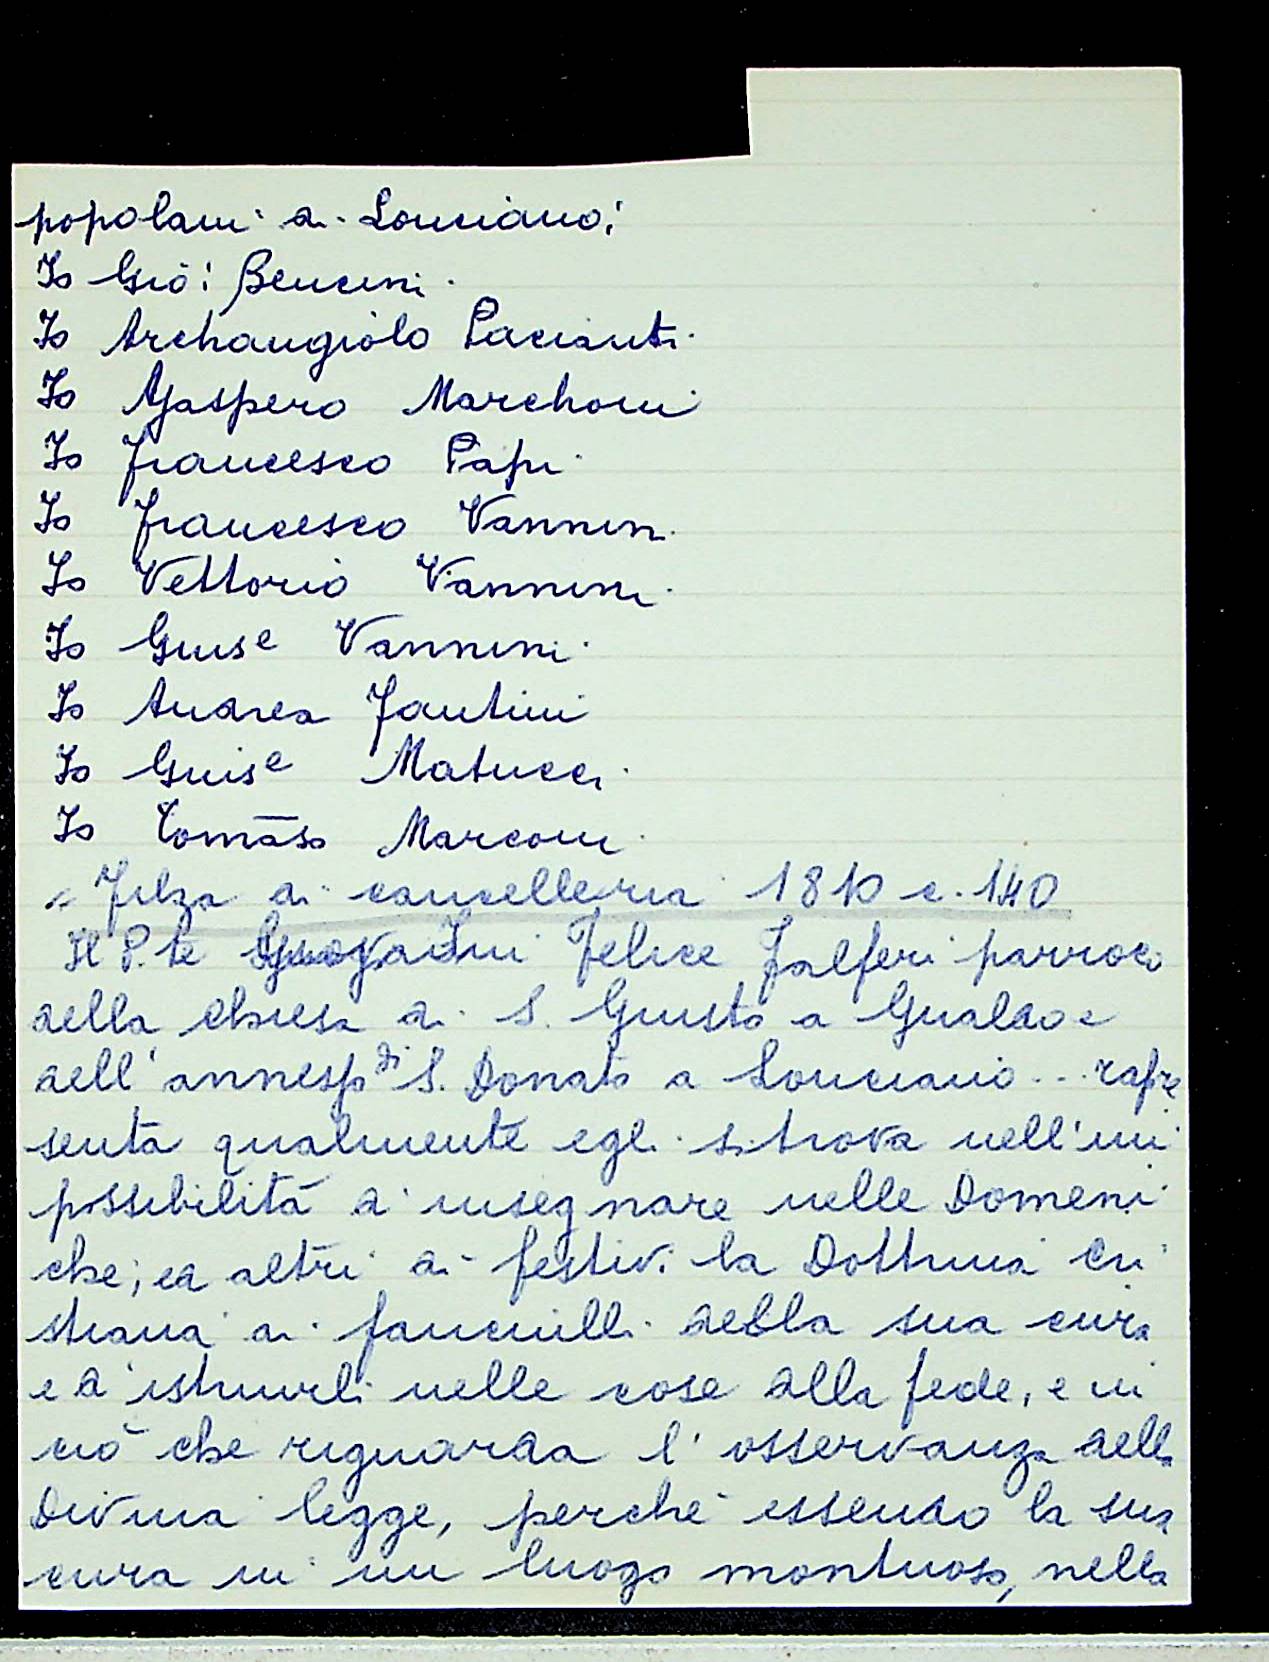 popolani di Lonciano:
Io Giō: Bencini.
Io Archangiolo Pacianti.
Io Gaspero Marchoni
Io Francesco Papi.
Io Francesco Vannini.
Io Vettorio Vannini.
Io Giuse Vannini.
Io Andrea Fantini
Io Giuse Matucci.
Io Tomāso Marconi.
Filza di cancelleria 1810 c. 140
Il P.te Felice Falferi parroco
della chiesa di S. Giusto a Gualdo e
dell'annesso di S. Donato a Lonciano... rapre
senta qualmente egli si trova nell'im
possibilità d'insegnare nelle Domeni
che, ed altri dì festivi la Dottrina Cri
stiana ai fanciulli della sua cura
e d'istruirli nelle cose alla fede, e in
ciò che riguarda l'osservanza della
Divina legge, perché essendo la sua
cura in un luogo montuoso, nella